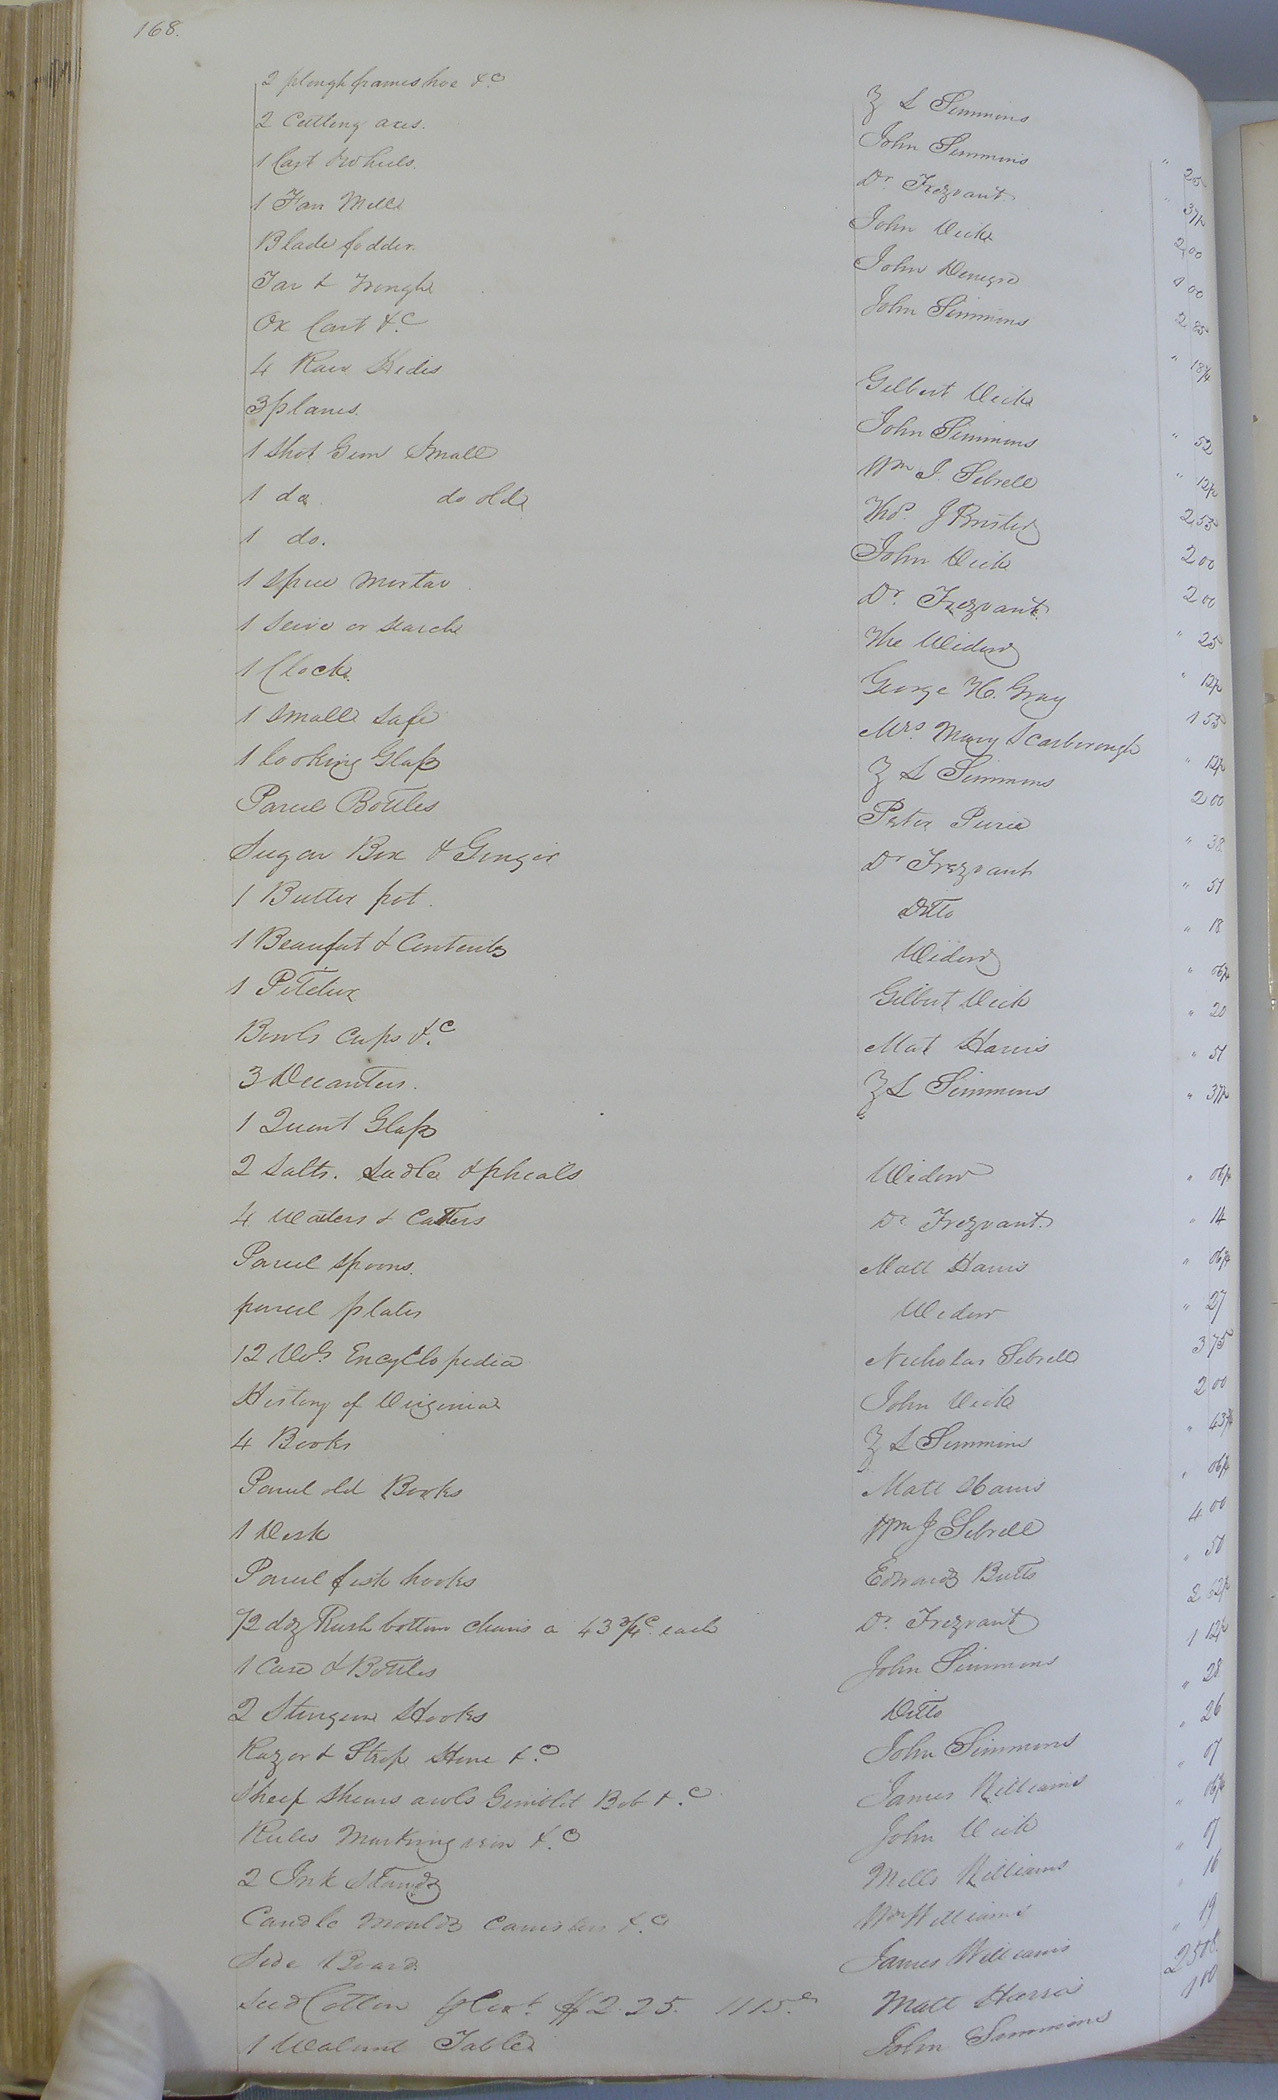 168.
2 plough frames hoe &c Z L Simmons
2 Cutting axes. John Simmons " 25
1 Cart & Wheels. Dr. Trezvant " 37½
1 Fan Mill John Vick 2 00
Blade fodder. John 1 00
Tar & Trough John Simmons 2 85
Ox Cart &c " 18¾
4 Raw Hides Gilbert Vick
3 planes. John Simmons " 52
1 Shot Gun Small Wm J. Sebrell " 12½
1 do do old Thos. J Pristly 2 53
1 do. John Vick 2 00
1 Spice Mortar Dr. Trezvant 2 00
1 Seive or Searche The Widow " 25
1 Clock. George H. Gray " 12½
1 Small Safe Mrs. Mary Scarborough 1 53
1 looking Glass Z L Simmons " 12½
Parcel Bottles Peter 2 00
Sugar Box & Ginger Dr Trezvant " 38
1 Butter pot. Ditto " 51
1 Beaufat & Contents Widow " 18
1 Pitcher Gilbert Vick " 06¼
Bowls Cups &c Mat Harris " 20
3 Decanters. Z L Simmons " 51
1 Quart Glass " " 37½
2 Salts. Ladle & pheals Widow " 06¼
4 Waiters & Casters Dr Trezvant. " 14
Parcel Spoons. Matt Harris " 06¼
parcel plates Widow " 27
12 Vols Encyclopedia Nicholas Sebrell 3 75
History of Virginia John Vick 2 00
4 Books Z L Simmons " 43¾
Parcel old Books Matt Harris " 06¼
1 Desk Wm J Sebrell 4 00
Parcel fish hooks Edward Butts " 51
½ doz Rush bottom Chairs a 43¾c each Dr. Trezvant 2 62½
1 Case & Bottles John Simmons 1 12½
2 Sturgeon Hooks Ditto " 28
Razor & Strop Hone &c John Simmons " 26
Sheep Shears awls Gimblet Bob &c James Williams " 07
Rules Marking iron &c John Vick " 06¼
2 Ink Stands Mills Williams " 17
Candle Moulds Canisters &c Wm Williams " 16
Side Board. James Williams " 19
Seed Cotton $2.25. 1115. Matt Harris 25 08
1 Walnut Table John Simmons 1 00